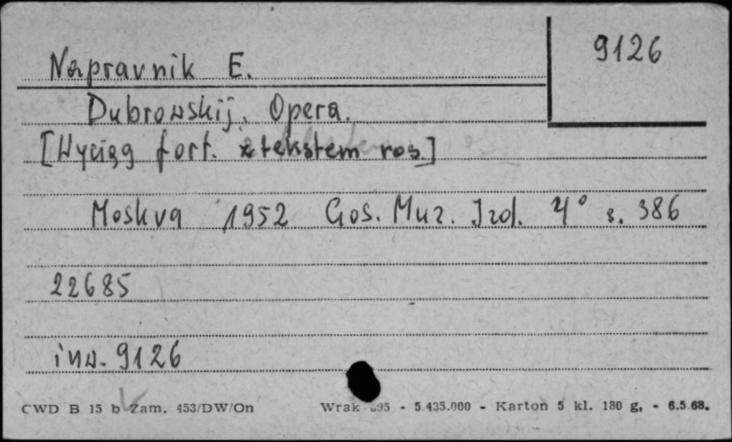 9126
Napravnik E.
Dubrowskij. Opera.
[Wyciąg fort. z tekstem ros.]
Moskva 1952 Gos. Muz. Izd. 4° s. 386
22685
inw. 9126
CWD B 15 b Zam. 453/DW/On Wrak 595 - 5.435.000 - Karton 5 kl. 180 g, - 6.5.68.